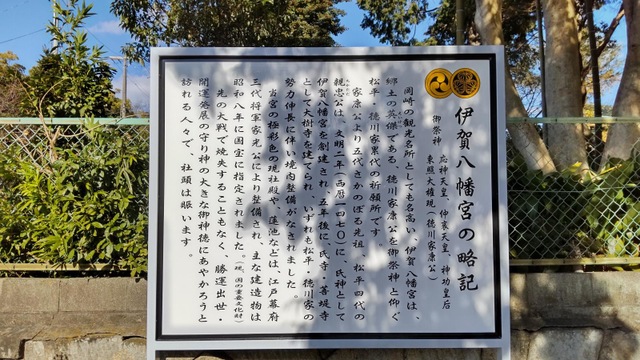 伊賀八幡宮の略記
御祭神　応神天皇　仲哀天皇　神功皇后
東照大権現（徳川家康公）
岡崎の観光名所としても名高い、伊賀八幡宮は、
郷土の英傑である、徳川家康公を御祭神と仰ぐ
松平・徳川家累代の祈願所です。
家康公より五代さかのぼる先祖、松平四代の
親忠公は、文明二年（西暦一四七〇）に、氏神として
伊賀八幡宮を創建され、五年後に、氏寺・菩提寺
として大樹寺を建てられ、いずれも松平・徳川家の
勢力伸長に伴い境内整備がなされました。
当宮の極彩色の現社殿や、蓮池などは、江戸幕府
三代将軍家光公により整備され、主な建造物は
昭和八年に国宝に指定されました。（現、国の重要文化財）
先の大戦で焼失することもなく、勝運出世・
開運発展の守り神の大きな御神徳にあやかろうと
訪れる人々で、社頭は賑います。